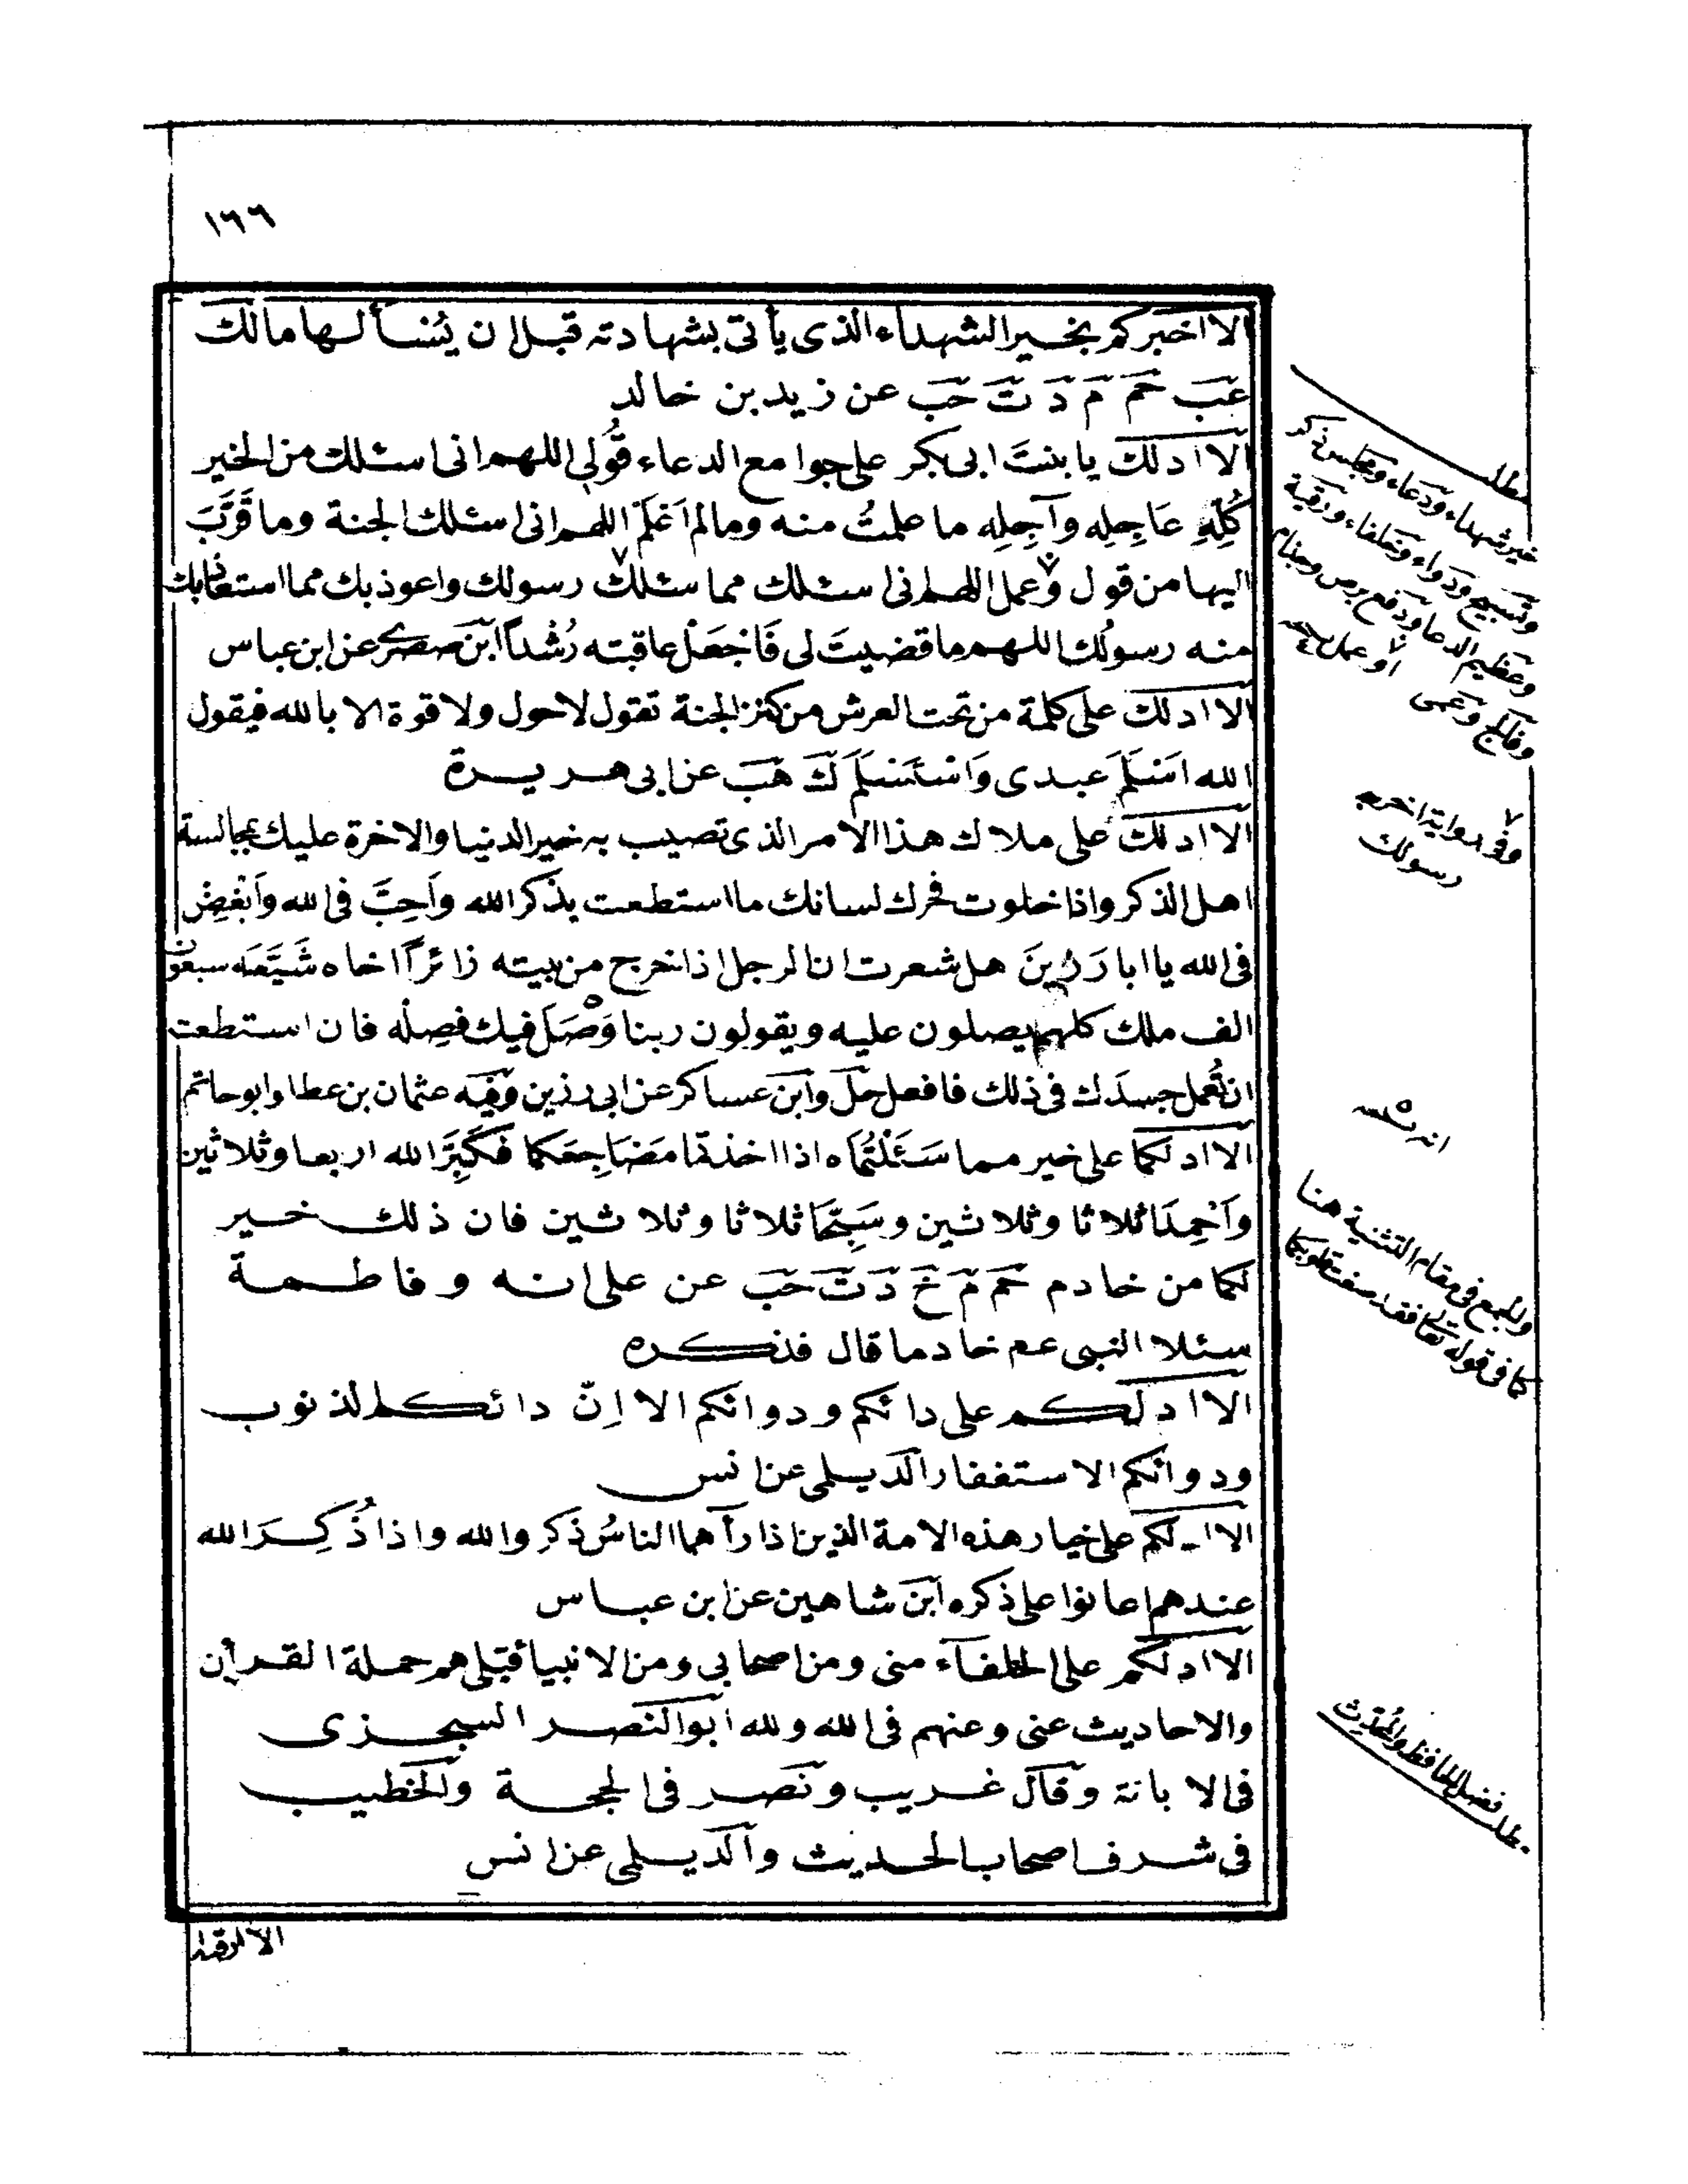 ١٦٦
الا اخبركم بخير الشهداء الذى يأتى بشهادته قبل ان يُنسأ لها مالك
عب حم م د ت حب عن زيد بن خالد
الا ادلك يا بنت ابى بكر على جوامع الدعاء قُولى اللهم انى اسئلك من الخير
كُلِّهِ عَاجِلِه وآجِلِه ما علمتُ منه ومالم اَعْلَمْ اللهم انى اسئلك الجنة وما قَرَّبَ
اليها من قول وعمل اللهم انى اسئلك مما سئلك رسولك واعوذ بك مما استعاذ بك
منه رسولُك اللهم ما قضيتَ لى فَاجْعَلْ عاقبته رُشْداً ابن صصرى عن ابن عباس
الا ادلك على كلمة من تحت العرش من كنز الجنة تقول لاحول ولا قوة الا بالله فيقول
الله اَسْلَمَ عبدى وَاسْتَسْلَمَ ك هب عن ابى هريرة
الا ادلك على ملاك هذا الامر الذى تصيب به خير الدنيا والاخرة عليك بمجالسة
اهل الذكر واذا خلوت فحرك لسانك ما استطعت بذكر الله واَحِبَّ فى الله واَبْغِضْ
فى الله يا ابا رَزِينَ هل شعرت ان الرجل اذا خرج من بيته زائراً اخاه شَيَّعَه سبعون
الف ملك كلهم يصلون عليه ويقولون ربنا وَصَلَ فيك فصِلْه فان استطعت
ان تُعمل جسدَك فى ذلك فافعل حل وابن عساكر عن ابى رزين وفيه عثمان بن عطا وابو حاتم
الا ادلكما على خير مما سَئَلْتُمَاه اذا اخذتما مَضَاجِعَكما فَكَبِّرَا الله اربعا وثلاثين
وَاَحْمِدَا ثلاثا وثلاثين وسَبِّحَا ثلاثا وثلاثين فان ذلك خير
لكما من خادم حم م خ د ت حب عن على انه وفاطمة
سئلا النبى عم خادما قال فذكره
الا ادلكم على دائكم ودوائكم الا اِنّ دائكم الذنوب
ودوائكم الاستغفار الديلمى عن انس
الا ادلكم على خيار هذه الامة الذين اذا رآهما الناسُ ذكروا الله واذا ذُكِرَ الله
عندهم اعانوا على ذكره ابن شاهين عن ابن عباس
الا ادلكم على الخلفاء منى ومن اصحابى ومن الانبيا قبلى هم حملة القرأن
والاحاديث عنى وعنهم فى الله ولله ابو النصر السجزى
فى الابانة وقال غريب ونصر فى الحجة والخطيب
فى شرف اصحاب الحديث والديلمى عن انس
مطلب
خير شهداء ودعاء ومجلس ذكر
وتسبيح ودواء وخلفاء ورقية
وعظيم الدعا ودفع برص وجذام
وفالج وعمى
او عمل
وفى رواية اخرجه
رسولك
وللجمع فى مقام التثنية هنا
كما فى قوله تعا فقد صغت قلوبكما
مطلب فضل الحافظ والمحدث